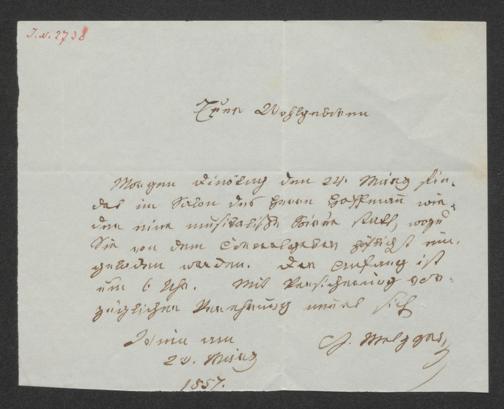 I.N. 2738
Euer Wohlgeboren
Morgen Dinstag den 24. März fin-
det im Salon des Herrn Hoffmann wie-
der eine musikalische Soirée statt, wozu
Sie von dem Concertgeber höflichst ein-
geladen werden. Der Anfang ist
um 6 Uhr. Mit Versicherung vor-
züglicher Verehrung nennt sich
Wien am
23. März
1857.